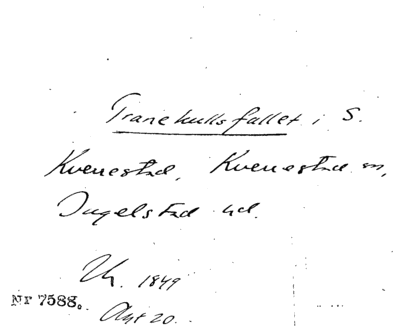 Tranekullsfallet i S.
Kverrestad, Kverrestad sn,
Ingelstad hd.
Uk. 1849
Nr 7588.
Akt 20.